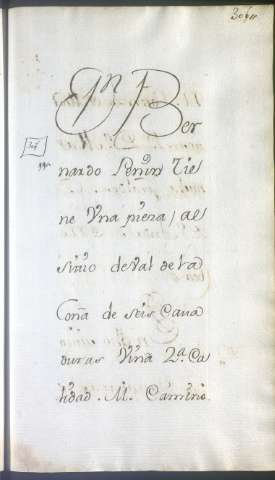 Dn Ber
nardo Tie
ne Una pieza / al
sitio de Val de la
Coña de seis Cava
duras Viña 2ª. Ca
lidad. M. Camino.